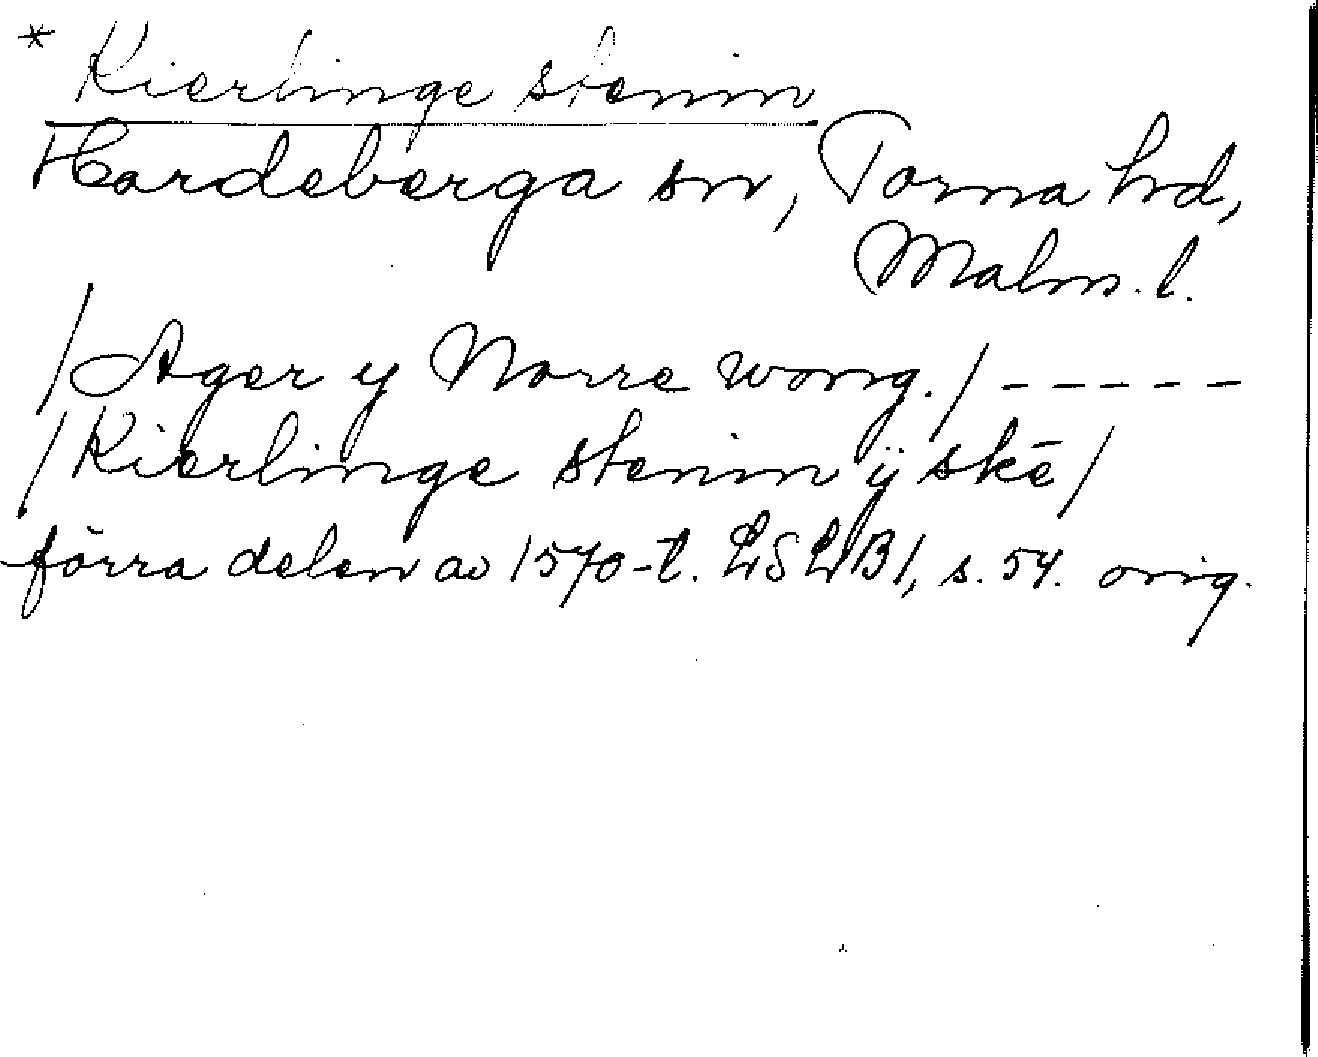 * Kierlinge stenin
Hardeberga sn, Torna hd,
Malm. l.
/Ager y Norre wong./ - - - - -
/Kierlinge stenin ÿ skē/
förra delen av 1570-t. LSLB1, s. 54. orig.